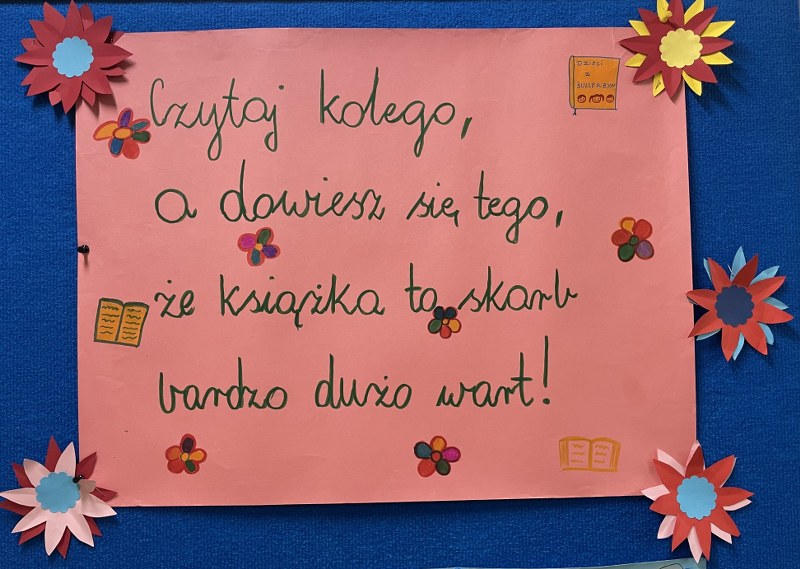 Czytaj kolego,
a dowiesz się tego,
że książka to skarb
bardzo dużo wart!
Dzieci
z
BULLERBYN